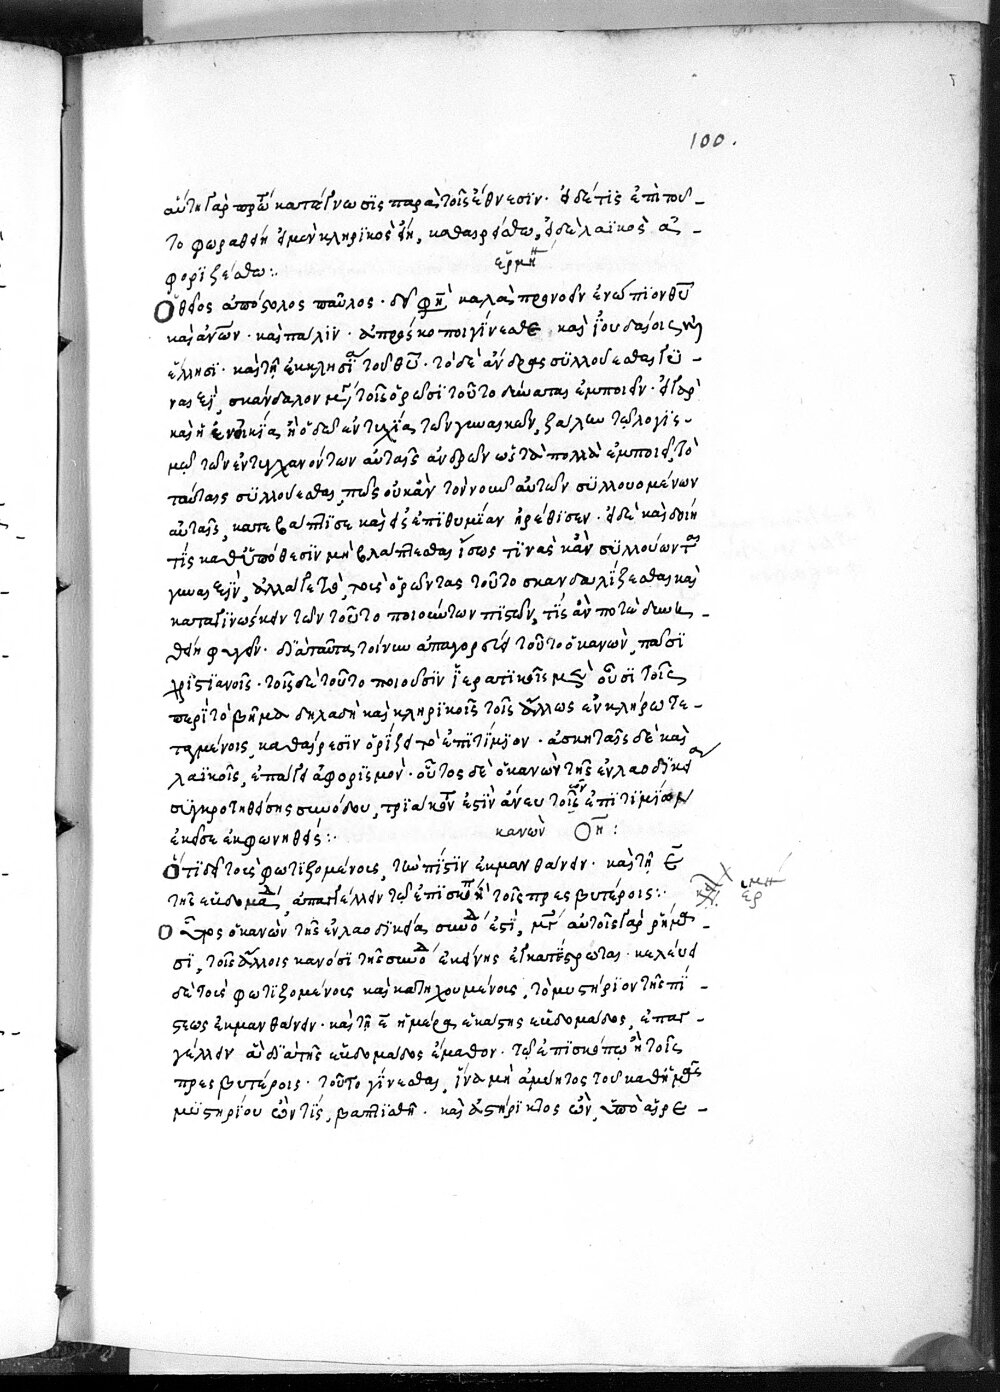 100.
αὕτη γὰρ πρώτη κατάγνωσϊς παρὰ τοῖς ἔθνεσϊν · εἰ δέ τϊς ἐπὶ τού
το φωραθείη εἰ μὲν κληρϊκὸς εἴη, καθαιρείσθω, εἰ δὲ λαϊκὸς ἀ
φορϊζέσθω :
ἑρμη
Ὁ θεῖος ἀπόστολος παῦλος · δεῖ φησὶ καλὰ προνοεῖν ἐνώπϊον θυ
καὶ ἀνων · καὶ πάλϊν · ἀπρόσκοποι γίνεσθε καὶ ϊουδαίοις καὶ
ἕλλησϊ · καὶ τῇ ἐκκλησία τοῦ θυ · τὸ δὲ ἄνδρας συλλούεσθαι γυ
ναιξὶ, σκάνδαλον μέγα τοῖς ὁρῶσϊ τοῦτο δύναται ἐμποιεῖν · εἰ γὰρ
καὶ ἡ ἐν οἰκία ἢ ὁδῶ συντυχία τῶν γυναικῶν, ζάλην τῶ λογισ
μῶ τῶν ἐντυγχανόντων αὐταῖς ἀνδρῶν ὡς τὰ πολλὰ ἐμποιεῖ, τὸ
ταύταις συλλούεσθαι, πῶς οὐκ ἂν τὸν νοῦν αὐτῶν συλλουομένων
αὐταῖς, κατεβάπτϊσε καὶ εἰς ἐπϊθυμϊαν ἠρέθϊσεν · εἰ δὲ καὶ δοίη
τϊς καθ' ὑπόθεσϊν μὴ βλάπτεσθαι ἴσως τϊνὰς κἂν συλλούωνται
γυναιξὶν, ἀλλά γε τὸ, τοὺς ὁρῶντας τοῦτο σκανδαλϊζεσθαι καὶ
καταγϊνώσκειν τῶν τοῦτο ποιούντων πϊστῶν, τϊς ἄν ποτε δυνη
θείη φυγεῖν · δϊὰ ταῦτα τοίνυν ἀπαγορεύει τοῦτο ὁ κανὼν, πᾶσϊ
χρϊστϊανοῖς · τοῖς δὲ τοῦτο ποιοῦσϊν ϊερατϊκοῖς μὲν οὖσϊ τοῖς
περὶ τὸ βῆμα δηλαδὴ καὶ κληρϊκοῖς τοῖς ἄλλως ἐν κλήρω τε
ταγμένοις, καθαίρεσϊν ὁρϊζει τὸ ἐπϊτίμϊον · ἀσκηταῖς δὲ καὶ
λαϊκοῖς, ἐπάγει ἀφορϊσμὸν · οὗτος δὲ ὁ κανὼν τῆς ἐν λαοδϊκεία
συγκροτηθείσης συνόδου, τρϊακοστός ἐστϊν ἄνευ τῶν ἐπϊτϊμϊων
ἐκεῖσε ἐκφωνηθεὶς :
κανὼν οη :
Ὅτϊ δεῖ τοὺς φωτϊζομένους, τὴν πίστϊν ἐκμανθάνειν · καὶ τῇ ε
τῆς ἑβδομάδος, ἀπαγγέλλειν τῶ ἐπϊσκόπω ἢ τοῖς πρεσβυτέροις :
ἑρμη
Οὗτος ὁ κανὼν τῆς ἐν λαοδϊκεία συνόδου ἐστϊ, μετὰ αὐτοῖς γὰρ ῥήμα
σϊ, τοῖς ἄλλοις κανόσϊ τῆς συνόδου ἐκείνης ἐγκατέστρωται · κελεύει
δὲ τοὺς φωτϊζομένους καὶ κατηχουμένους, τὸ μυστήρϊον τῆς πϊ
στεως ἐκμανθάνειν · καὶ τῇ ε ἡμέρα ἑκάστης ἑβδομάδος, ἐπαγ
γέλλειν ἃ δϊὰ τῆς ἑβδομάδος ἔμαθον · τῶ ἐπϊσκόπω ἢ τοῖς
πρεσβυτέροις · τοῦτο γίνεσθαι, ἵνα μὴ ἀμύητος τοῦ καθ' ἡμᾶς
μυστηρίου ὤν τϊς, βαπτϊσθῆ · καὶ ἀστήρϊκτος ὢν, ὑπὸ αἱρε